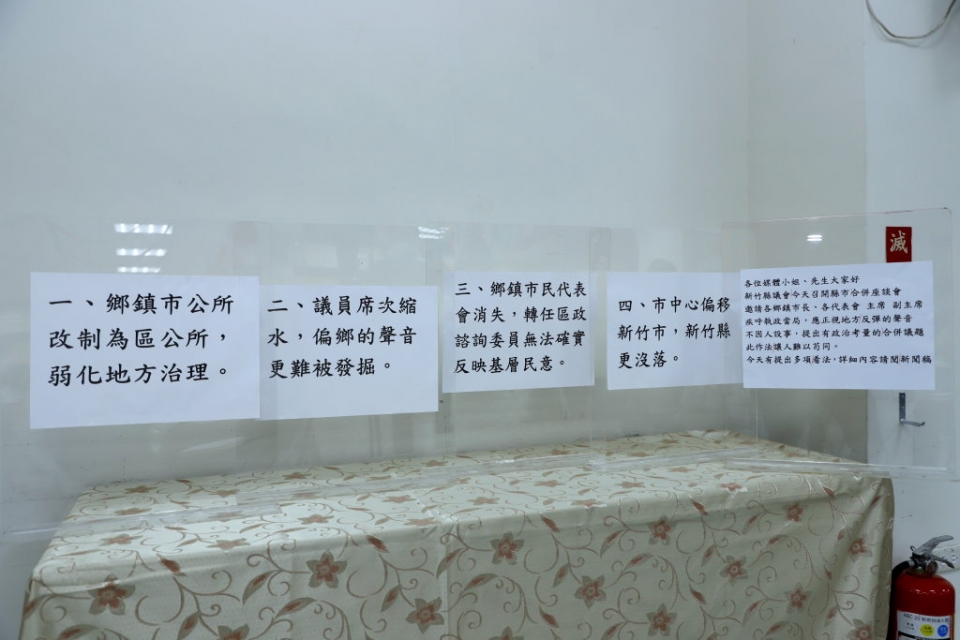 一、鄉鎮市公所
改制為區公所，
弱化地方治理。
二、議員席次縮
水，偏鄉的聲音
更難被發掘。
三、鄉鎮市民代表
會消失，轉任區政
諮詢委員無法確實
反映基層民意。
四、市中心偏移
新竹市，新竹縣
更沒落。
各位媒體小姐、先生大家好
新竹縣議會今天召開縣市合併座談會
邀請各鄉鎮市長、各代表會 主席 副主席
疾呼執政當局，應正視地方反彈的聲音
不因人設事，提出有政治考量的合併議題
此作法讓人難以苟同。
今天有提出多項看法，詳細內容請閱新聞稿
滅